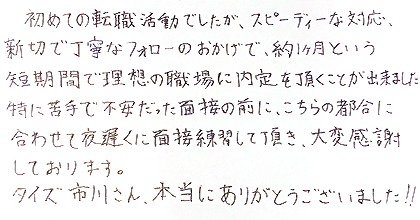 初めての転職活動でしたが、スピーディーな対応、
新切で丁寧なフォローのおかげで、約1ヶ月という
短期間で理想の職場に内定を頂くことが出来ました
特に苦手で不安だった面接の前に、こちらの都合に
合わせて夜遅くに面接練習して頂き、大変感謝
しております。
タイズ 市川さん、本当にありがとうございました!!